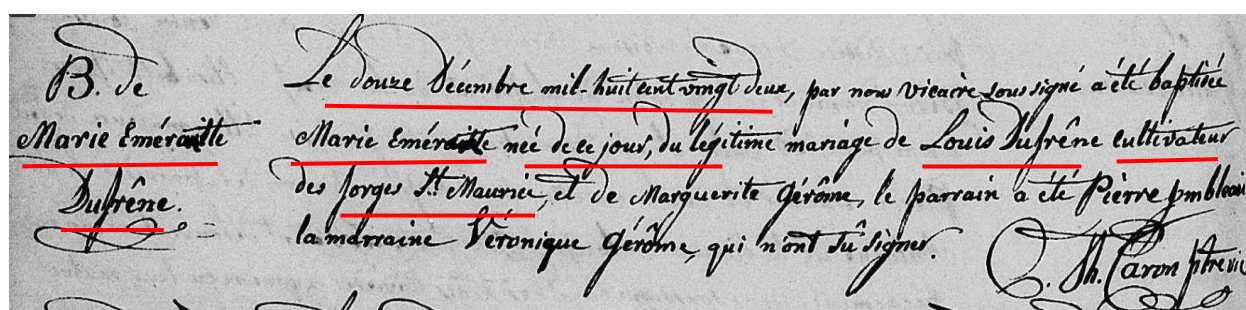 B. de
Marie Eméraitte
Dufrêne.
Le douze Décembre mil-huit cent vingt deux, par nous vicaire soussigné a été baptisée
Marie Eméraitte née de ce jour, du légitime mariage de Louis Dufrêne cultivateur
des forges St. Maurice, et de Marguerite Gérôme, le parrain a été Pierre
la marraine Véronique Gérôme, qui n'ont sû signer.
Th. Caron ptre vic